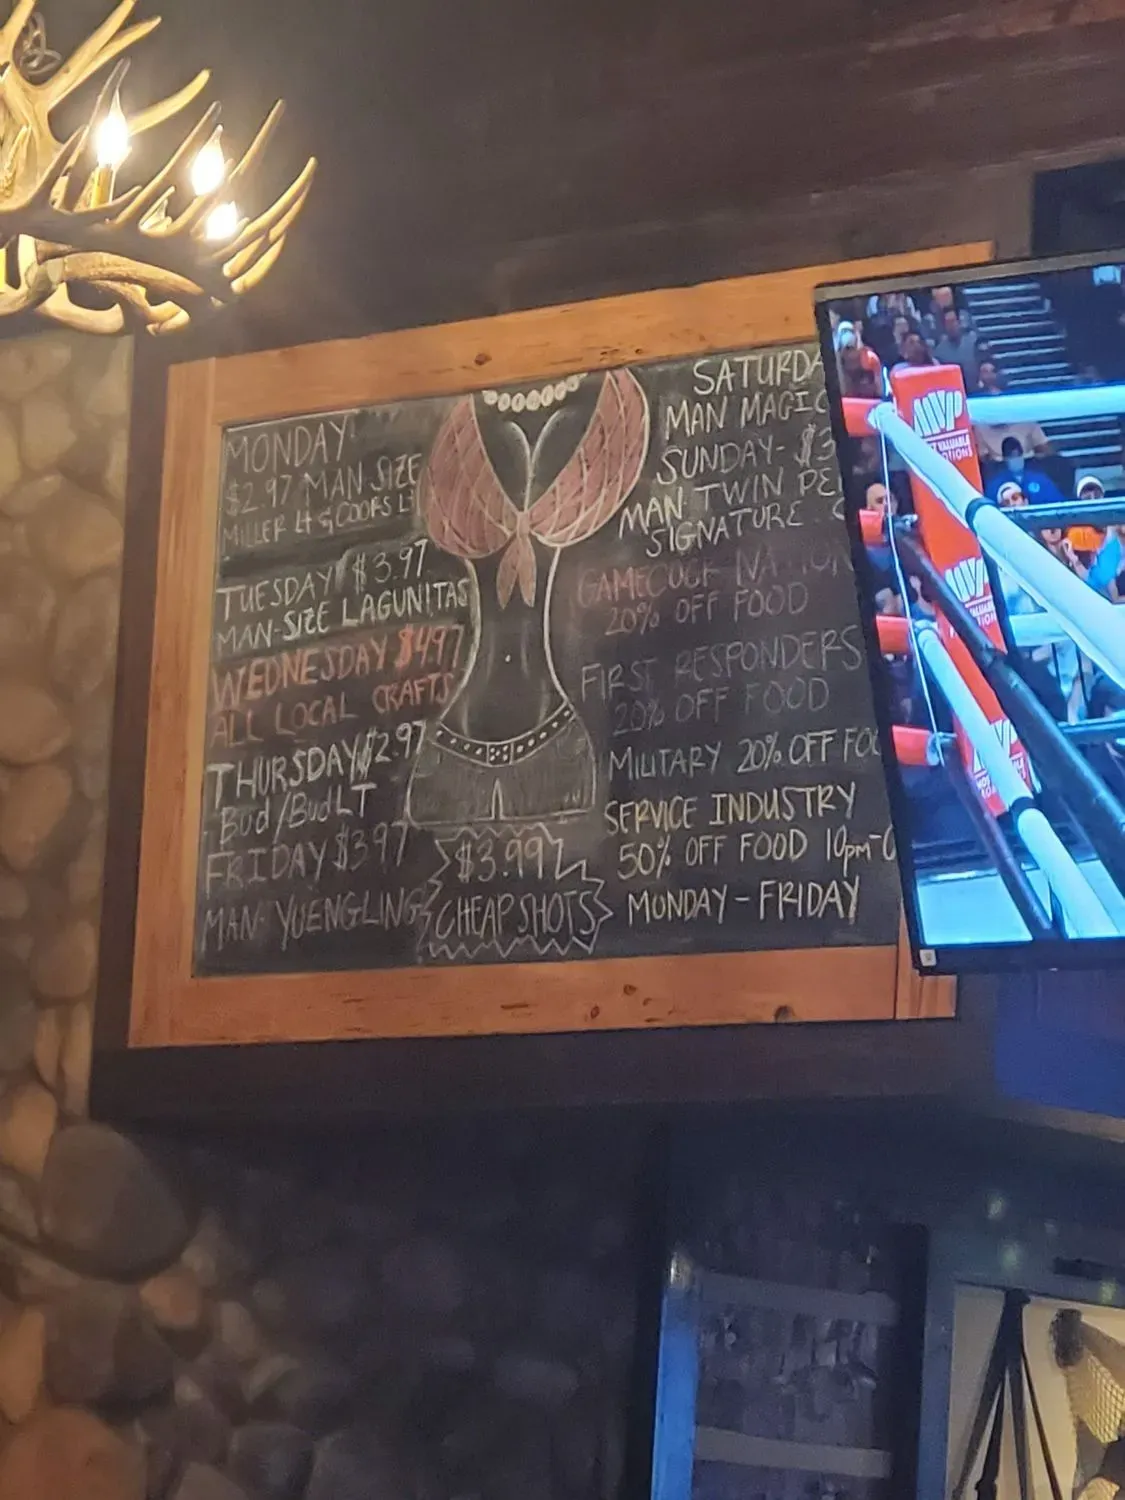 MONDAY
$2.97 MAN SIZE
MILLER Lt & COORS Lt
TUESDAY $3.97
MAN-SIZE LAGUNITAS
WEDNESDAY $4.97
ALL LOCAL CRAFTS
THURSDAY $2.97
Bud/Bud LT
FRIDAY $3.97
MAN-YUENGLING
$3.99
CHEAP SHOTS
SATURDA
MAN MAGIC
SUNDAY- $3
MAN TWIN PE
SIGNATURE
GAMECOCK NATION
20% OFF FOOD
FIRST RESPONDERS
20% OFF FOOD
MILITARY 20% OFF FOO
SERVICE INDUSTRY
50% OFF FOOD 10pm-C
MONDAY - FRIDAY
MVP
MVP